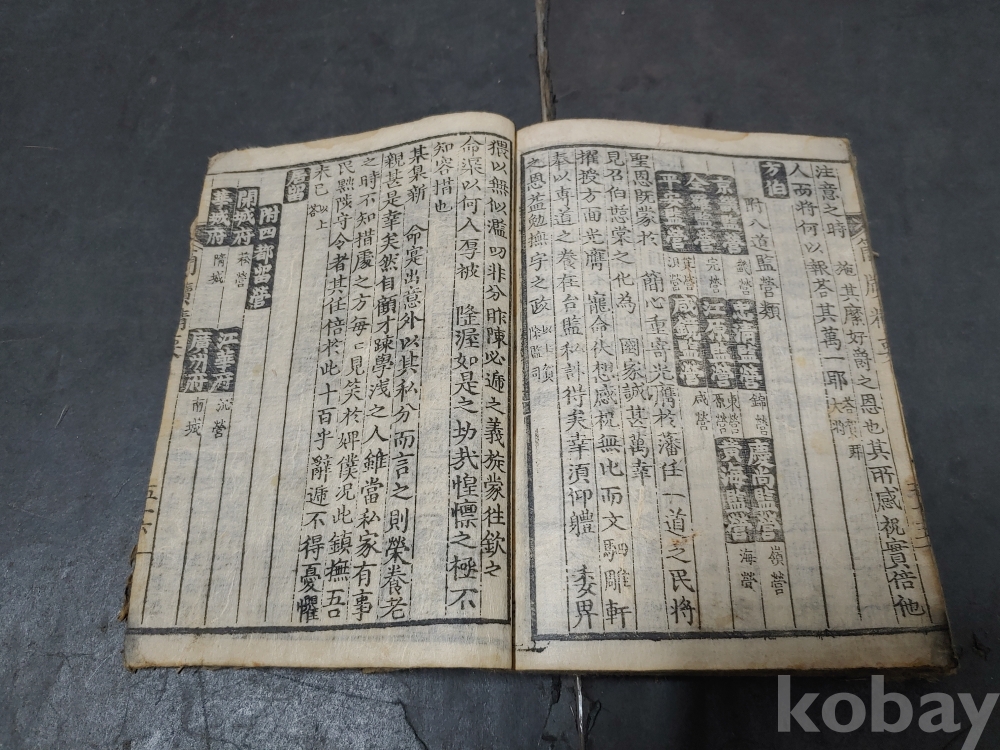 注意之時 施其縻好爵之恩也其所感祝實倍他
人而將何以報答其萬一耶
方伯
附八道監營類
京畿監營 畿營 忠淸監營 錦營 慶尙監營 嶺營
全羅監營 完營 江原監營 東營 原營 黃海監營 海營
平安監營 箕營 浿營 咸鏡監營 咸營
聖恩旣蒙於 簡心重寄光膺於藩任一道之民將
見召伯憩棠之化爲 國家誠甚萬幸
擢授方面光膺 寵命失想感祝無比而文駟雕軒
奉以專道之養在台監私計得矣幸須仰體 委畀
之恩益勉撫字之政
猥以無似濫叨非分昨陳必遞之義旋蒙往欽之
命渠以何人厚被 隆渥如是之切哉惶懍之極不
知容措也
某果新 命寔出意外以其私分而言之則榮養老
親甚是幸矣然自顧才踈學淺之人雖當私家有事
之時不知措處之方每每見笑於婢僕況此鎭撫吾
民黜陟守令者其任倍於此十百乎辭遞不得憂懼
未已 以上答
居留
附四都留營
開城府 菘營 江華府 沉營
華城府 隋城 廣州府 南城
簡牘精要
kobay